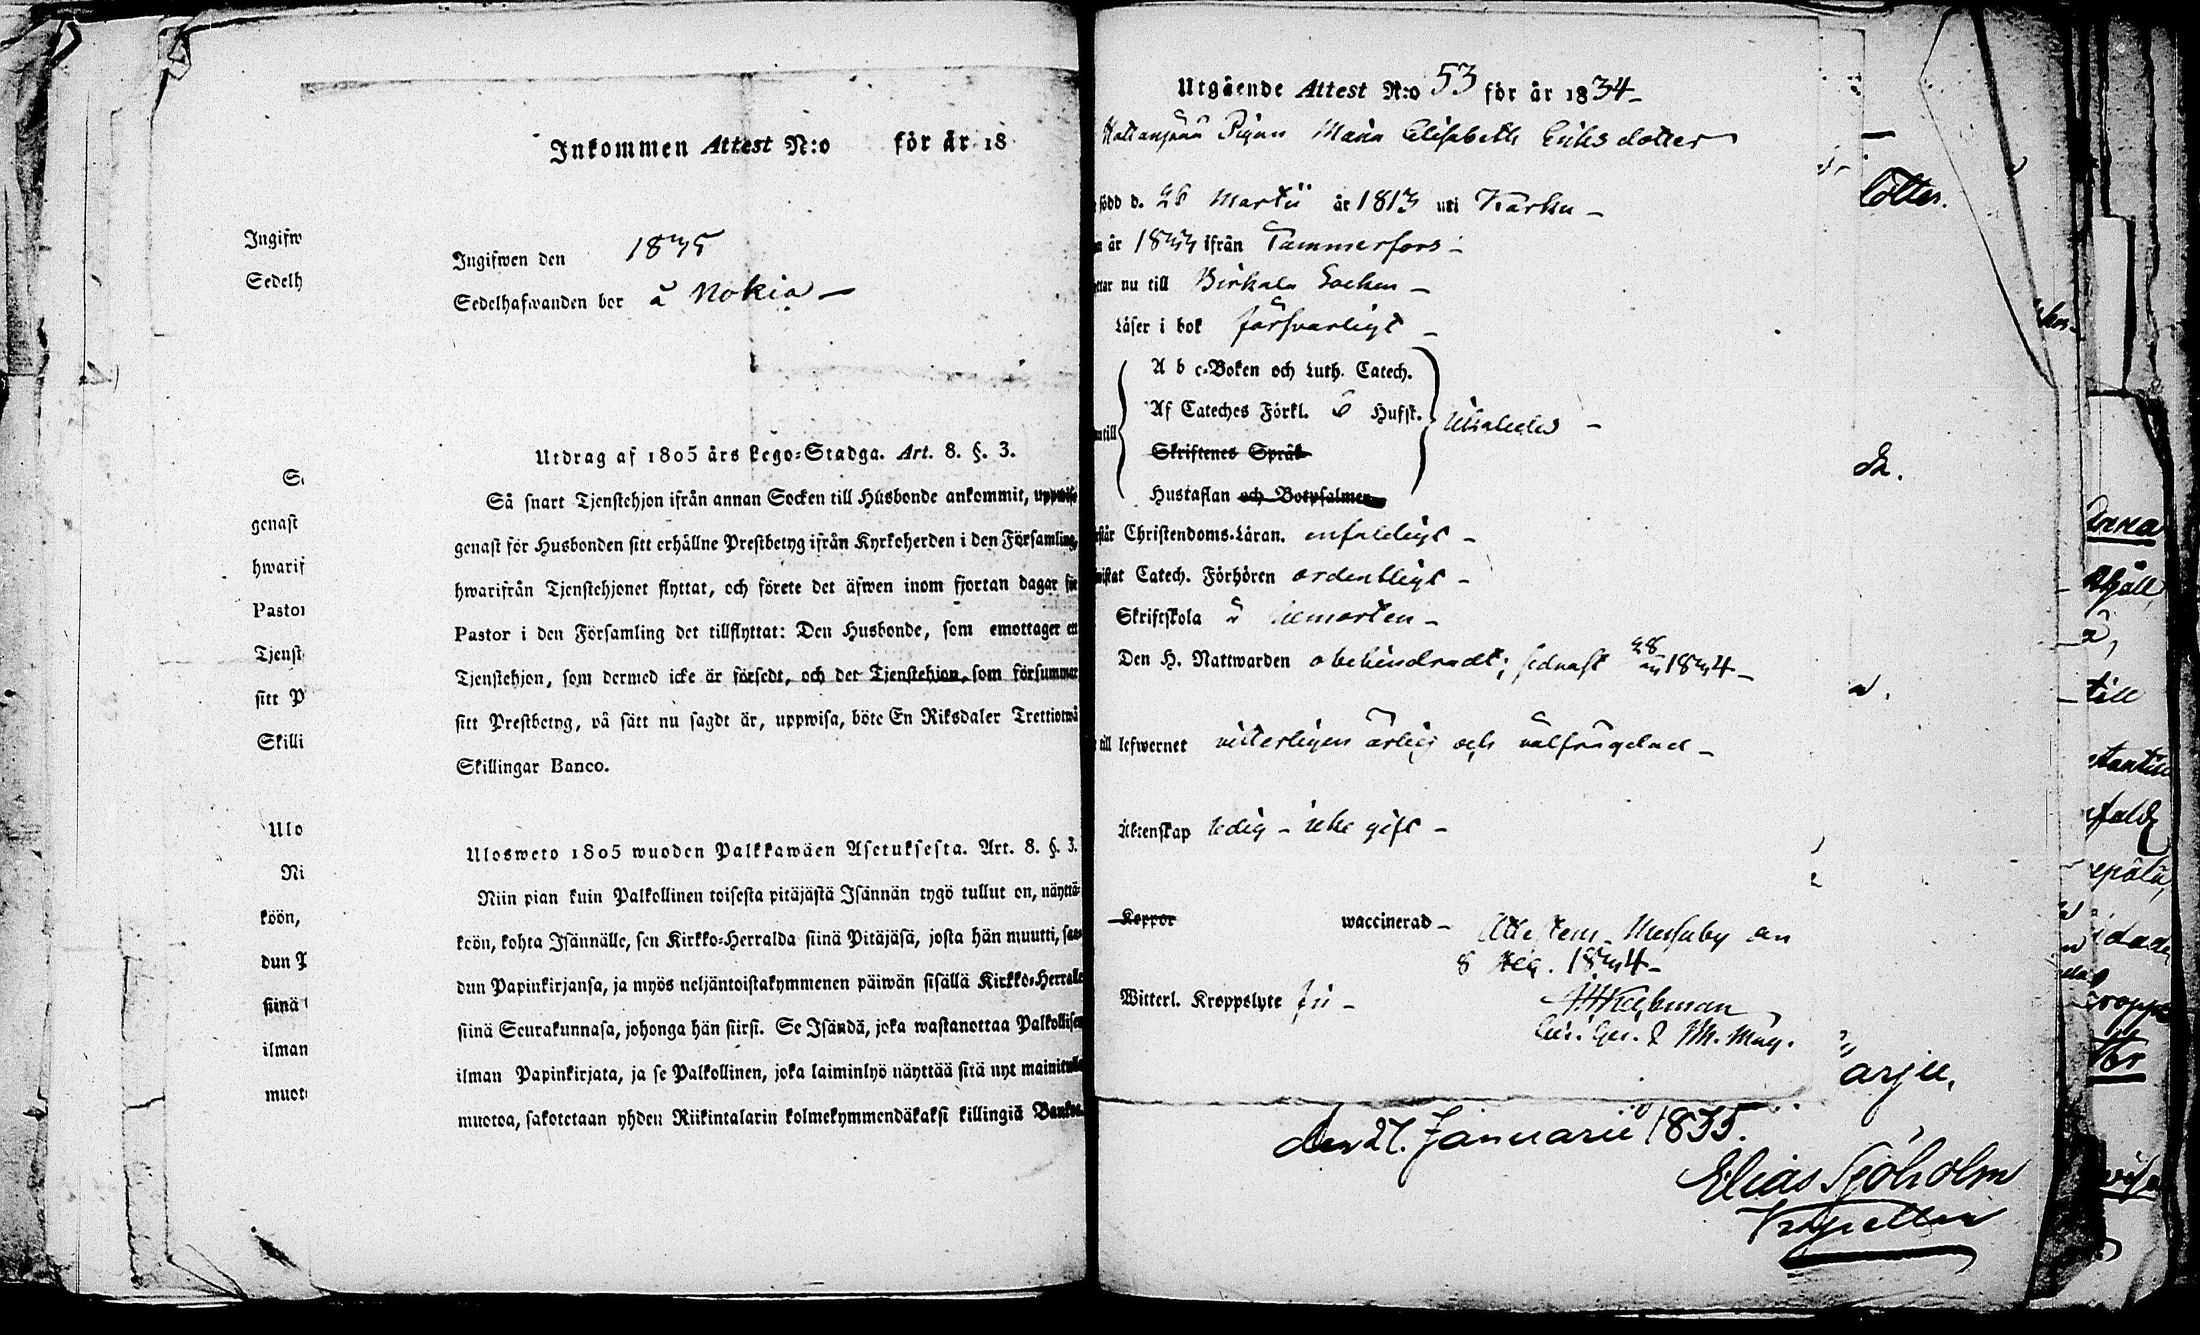 Inkommen Attest N:o för år 18
Ingifw
Sedelh
Ingifwen den 1835
Sedelhafwanden bor å Nokia —
Utdrag af 1805 års Lego-Stadga. Art. 8. §. 3.
Så snart Tjenstehjon ifrån annan Socken till Husbonde ankommit, uppwise
genast för Husbonden sitt erhållne Prestbetyg ifrån Kyrkoherden i den Församling,
hwarifrån Tjenstehjonet flyttat, och förete det äfwen inom fjorton dagar för
Pastor i den Församling det tillflyttat: Den Husbonde, som emottager ett
Tjenstehjon, som dermed icke är försedt, och det Tjenstehjon, som försummar
sitt Prestbetyg, på sätt nu sagdt är, uppwisa, böte En Riksdaler Trettiotwå
Skillingar Banco.
Ulosweto 1805 wuoden Palkkawäen Asetuksesta. Art. 8. §. 3.
Niin pian kuin Palkollinen toisesta pitäjästä Isännän tygö tullut on, näyttä-
köön, kohta Isännälle, sen Kirkko-Herralda siinä Pitäjäsä, josta hän muutti, saa-
dun Papinkirjansa, ja myös neljäntoistakymmenen päiwän sisällä Kirkko-Herralle
siinä Seurakunnasa, johonga hän siirsi. Se Isändä, joka wastanottaa Palkollisen
ilman Papinkirjata, ja se Palkollinen, joka laiminlyö näyttää sitä nyt mainitulla
muotoa, sakotetaan yhden Riikintalarin kolmekymmendäkaksi killingiä Bankos.
genast
hwarif
Pastor
Tjenst
sitt P
Skilli
Ulo
Ni
köön,
dun P
siinä
ilman
muoto
Utgående Attest N:o 53 för år 1834 —
Pigan Maria Elisabeth Eriksdotter
född d. 26 Martii år 1813 uti Karku —
år 1833 ifrån Tammerfors —
nu till Birkala Socken —
Läser i bok försvarligt —
A b c-Boken och Luth. Catech.
Af Cateches Förkl. 6 Hufst.
Skriftenes Språk
Hustaflan och Botpsalmer
Christendoms-Läran. enfaldigt —
Catech. Förhören ordentligt —
Skriftskola å
Den H. Nattwarden obehindradt; sednast 28 1834 —
till lefwernet witterligen ärlig och välfrägdad —
Äktenskap ledig — icke gift —
Koppor waccinerad — Messuby den
8 1834 —
Witterl. Kroppslyte fri —
den 27. Januarii 1835.
Elias Sjöholm
Kapellan